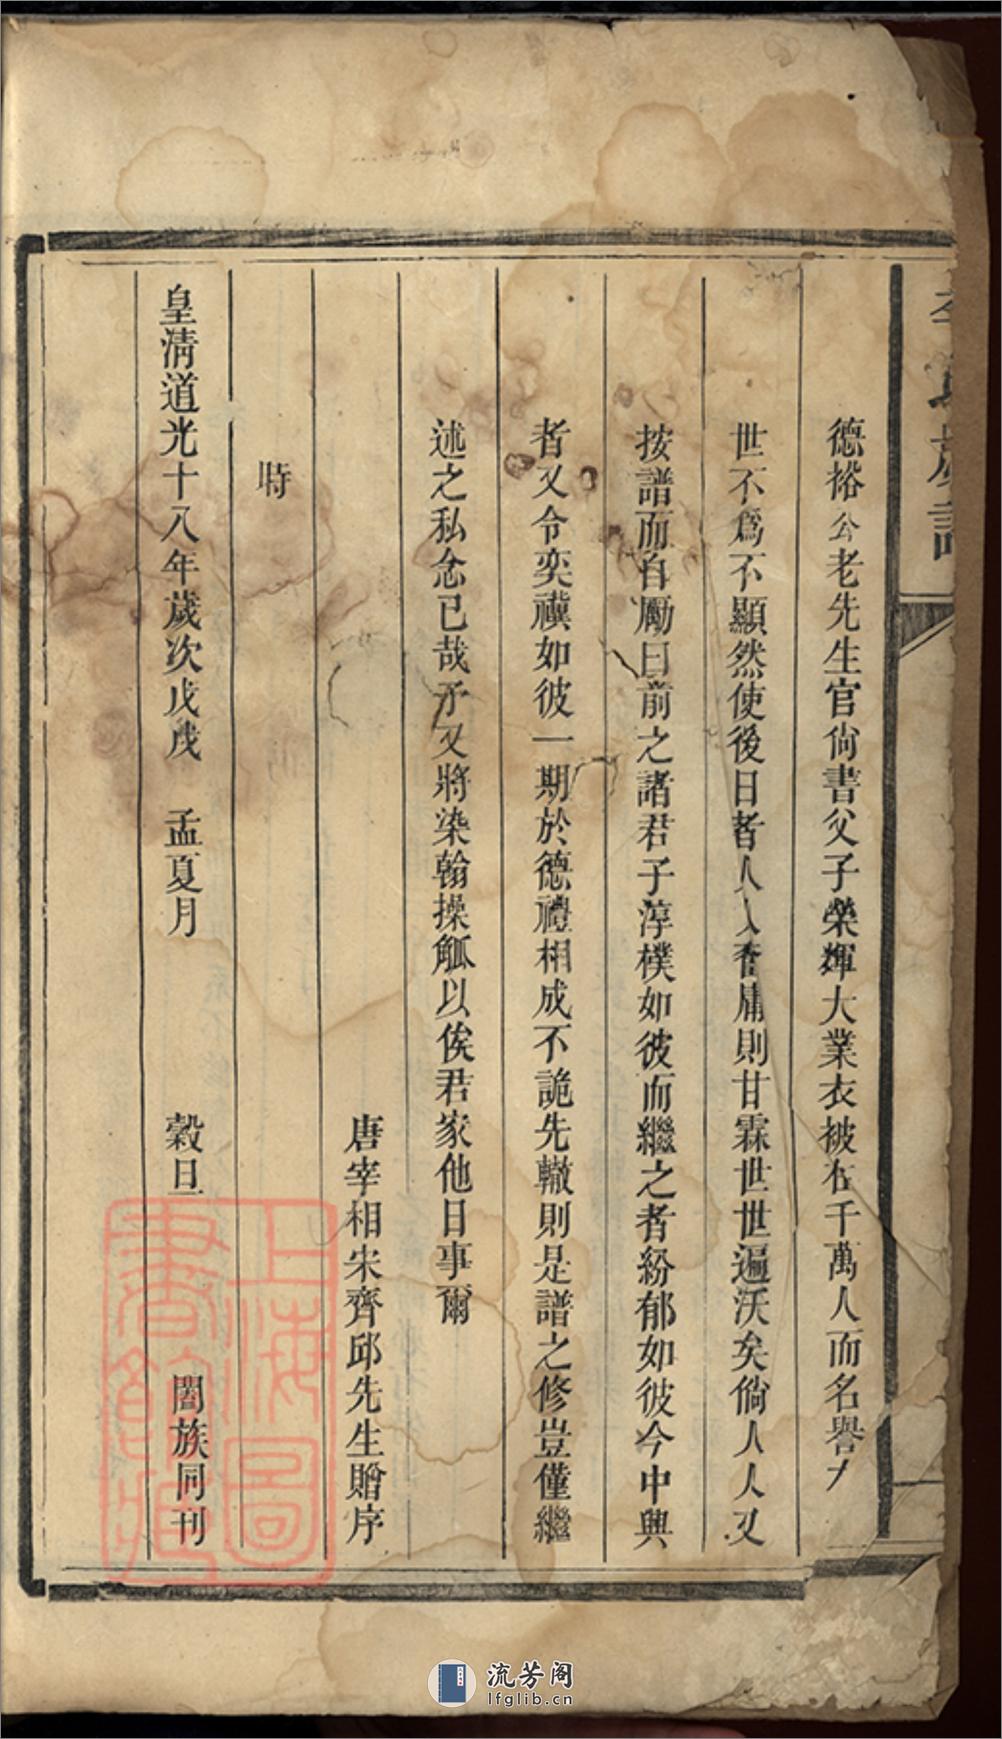 族譜
德裕公老先生官尙書父子榮輝大業衣被在千萬人而名譽
世不爲不顯然使後日者人人香庸則甘霖世世遍沃矣倘人人又
按譜而自勵曰前之諸君子淳樸如彼而繼之者紛郁如彼今中興
者又令奕禩如彼一期於德禮相成不詭先轍則是譜之修豈僅繼
述之私念已哉予又將染翰操觚以俟君家他日事爾
唐宰相宋齊邱先生贈序
時
皇清道光十八年歲次戊戌 孟夏月 穀旦 闔族同刊
上海圖書館藏
流芳阁
lfglib.cn